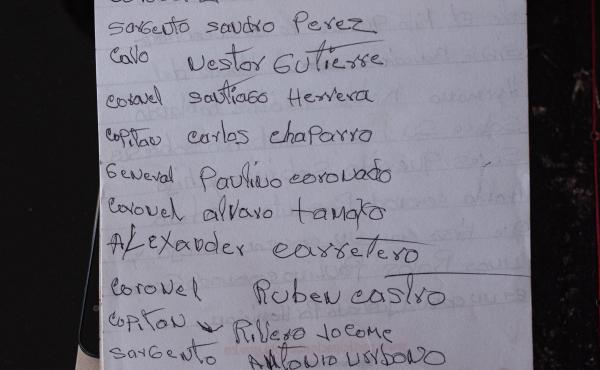 sargento sandro Perez
Cavo Nestor Gutierre
coronel santiago Herrera
copitan carlos chaparro
General Paulino coronado
coronel alvaro tamayo
Alexander carretero
coronel Ruben castro
copiton Rivero Jocome
sargento Antonio urbono